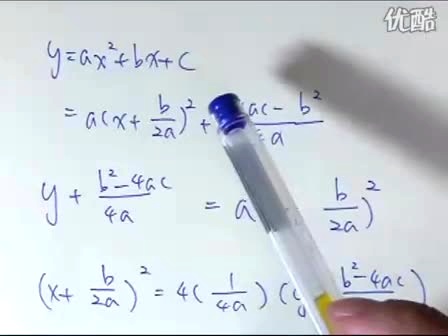 优酷
y=ax²+bx+c
=a(x+b/2a)²+ ac-b²/a
y+b²-4ac/4a = a b/2a)²
(x+b/2a)²=4(1/4a)( b²-4ac)